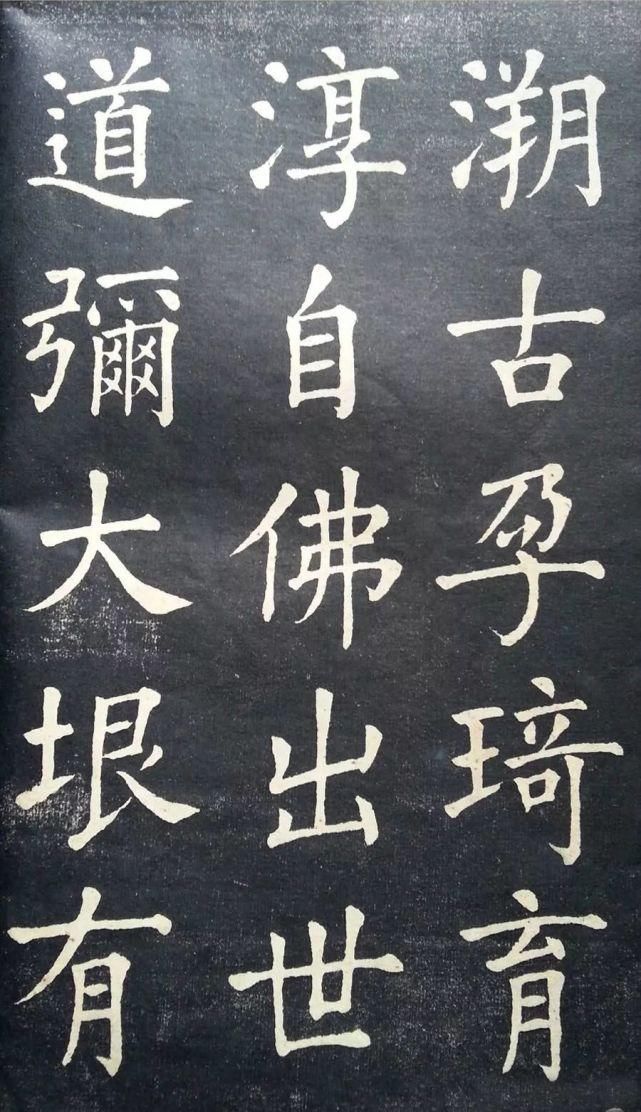 溯古孕琦育
淳自佛出世
道彌大垠有